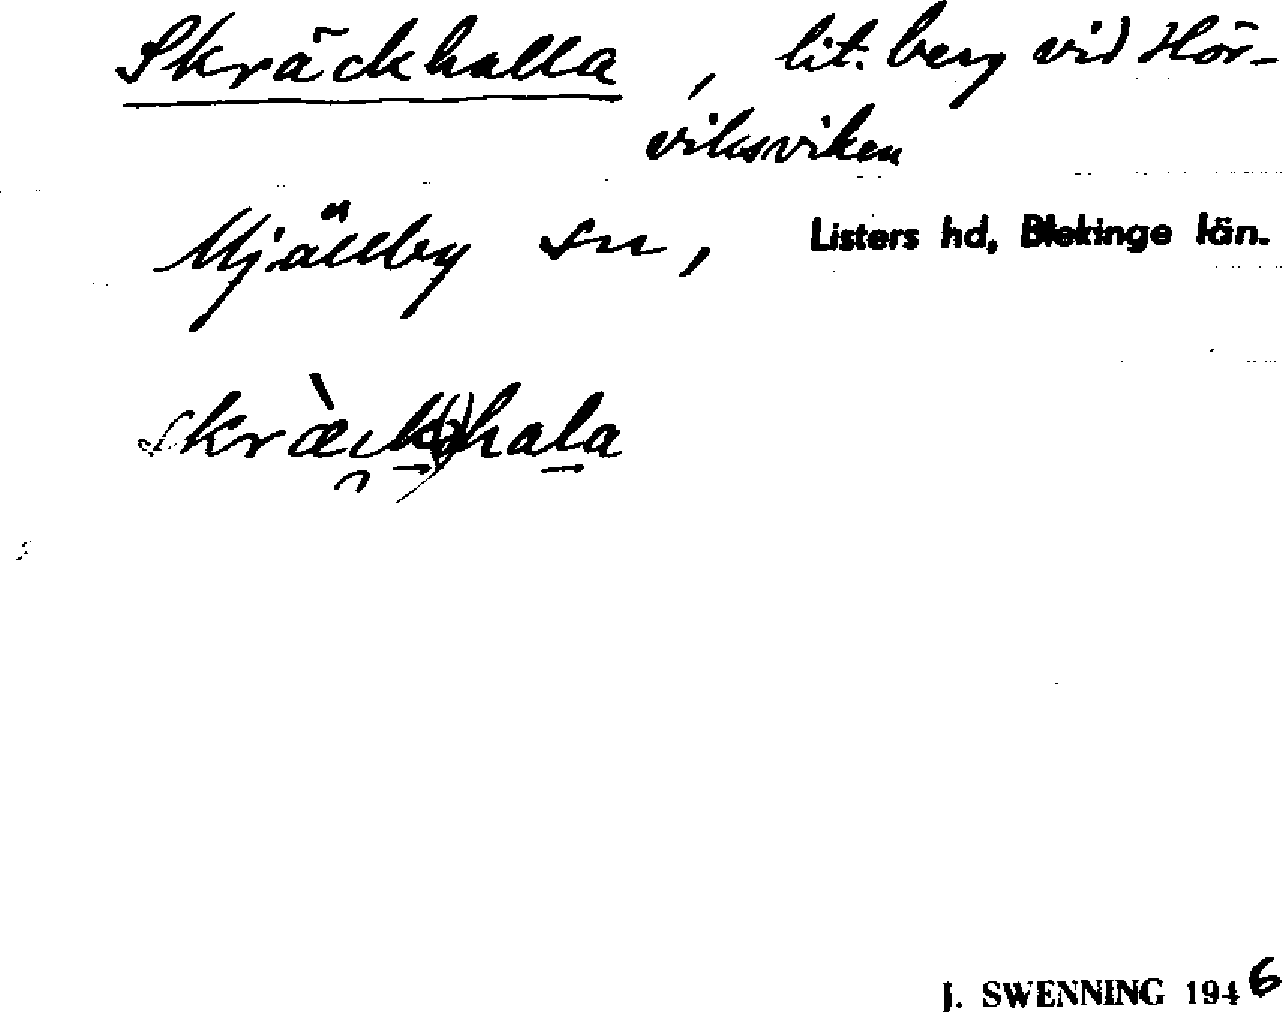 Skräckhalla, lit. berg vid Hör-
viksviken
Mjällby sn, Listers hd, Blekinge län.
J. SWENNING 1946